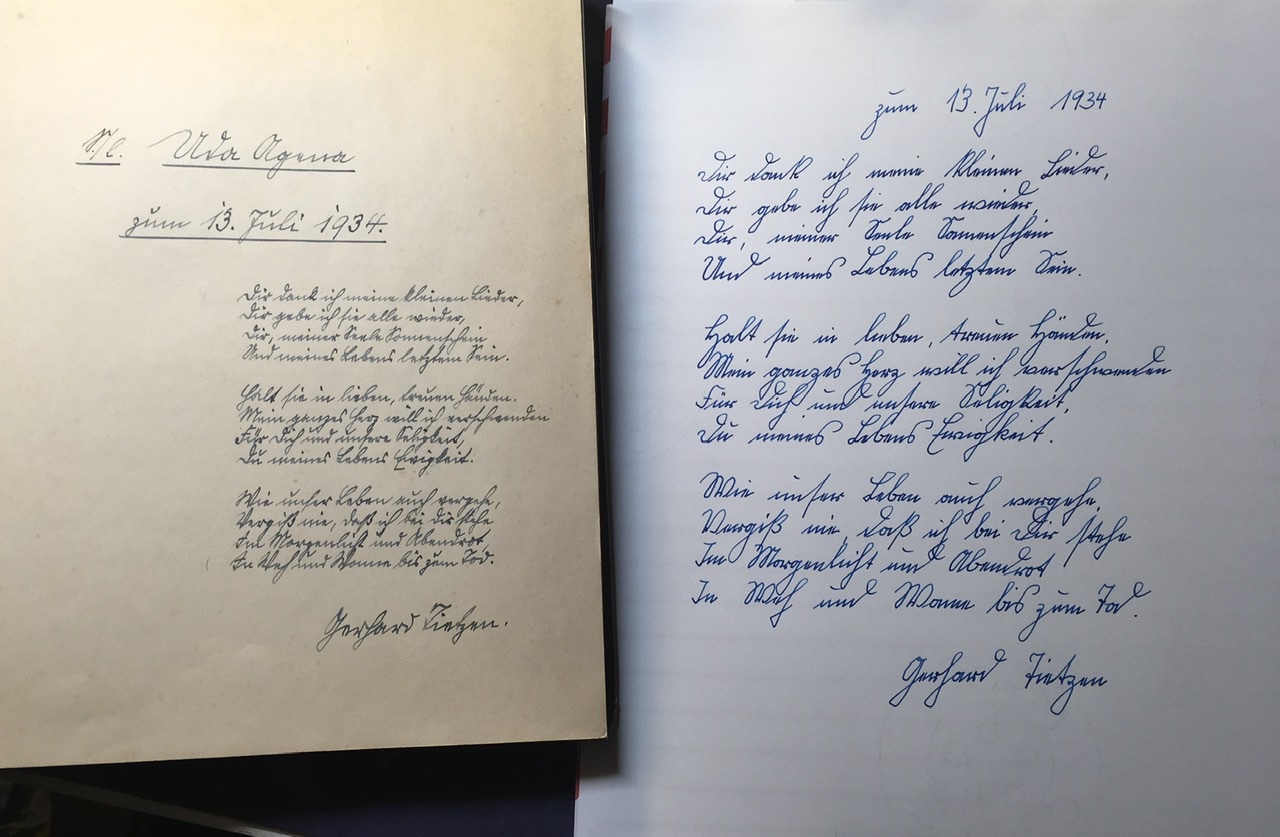 Frl. Uda Agena
zum 13. Juli 1934.
Dir dank ich meine kleinen Lieder,
Dir gebe ich sie alle wieder,
Dir, meiner Seele Sonnenschein
Und meines Lebens letztem Sein.
Halt sie in lieben, treuen Händen.
Mein ganzes Herz will ich verschwenden
Für Dich und unsere Seligkeit,
Du meines Lebens Ewigkeit.
Wie unser Leben auch vergehe,
Vergiß nie, daß ich bei dir stehe
Im Morgenlicht und Abendrot,
In Weh und Wonne bis zum Tod.
Gerhard Tietzen.
zum 13. Juli 1934
Dir dank ich meine kleinen Lieder,
Dir gebe ich sie alle wieder,
Dir, meiner Seele Sonnenschein
Und meines Lebens letztem Sein.
Halt sie in lieben, treuen Händen.
Mein ganzes Herz will ich verschwenden
Für Dich und unsere Seligkeit,
Du meines Lebens Ewigkeit.
Wie unser Leben auch vergehe,
Vergiß nie, daß ich bei Dir stehe
Im Morgenlicht und Abendrot
In Weh und Wonne bis zum Tod.
Gerhard Tietzen